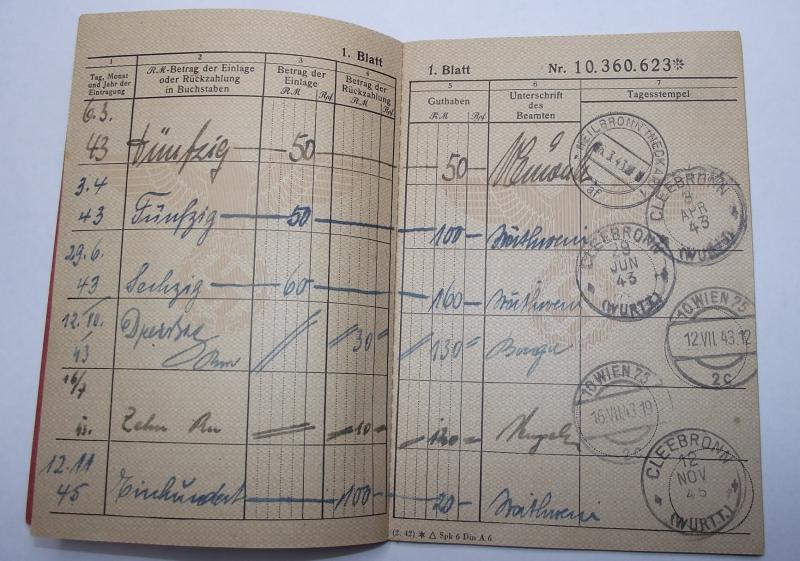 1. Blatt
1 2 3 4
Tag, Monat und Jahr der Eintragung
RM-Betrag der Einlage oder Rückzahlung in Buchstaben
Betrag der Einlage RM Rpf
Betrag der Rückzahlung RM Rpf
1. Blatt Nr. 10.360.623*
5 6 7
Guthaben RM Rpf
Unterschrift des Beamten
Tagesstempel
6.3. 43 Fünfzig 50 50
HEILBRONN (NECKAR)
3.4 43 Fünfzig 50 100
CLEEBRONN APR 43 (WÜRTT.)
29.6. 43 Sechzig 60 160
CLEEBRONN 29 JUN 43 (WÜRTT.)
43 30 130
10 WIEN 75 12.VII.43.12 2c
Zehn 10 120
10 WIEN 75 16.VII.43.19 2c
12.11 45 Einhundert 100 20
CLEEBRONN 12 NOV 45 (WÜRTT.)
(2. 42) * △ Spk 6 Din A 6